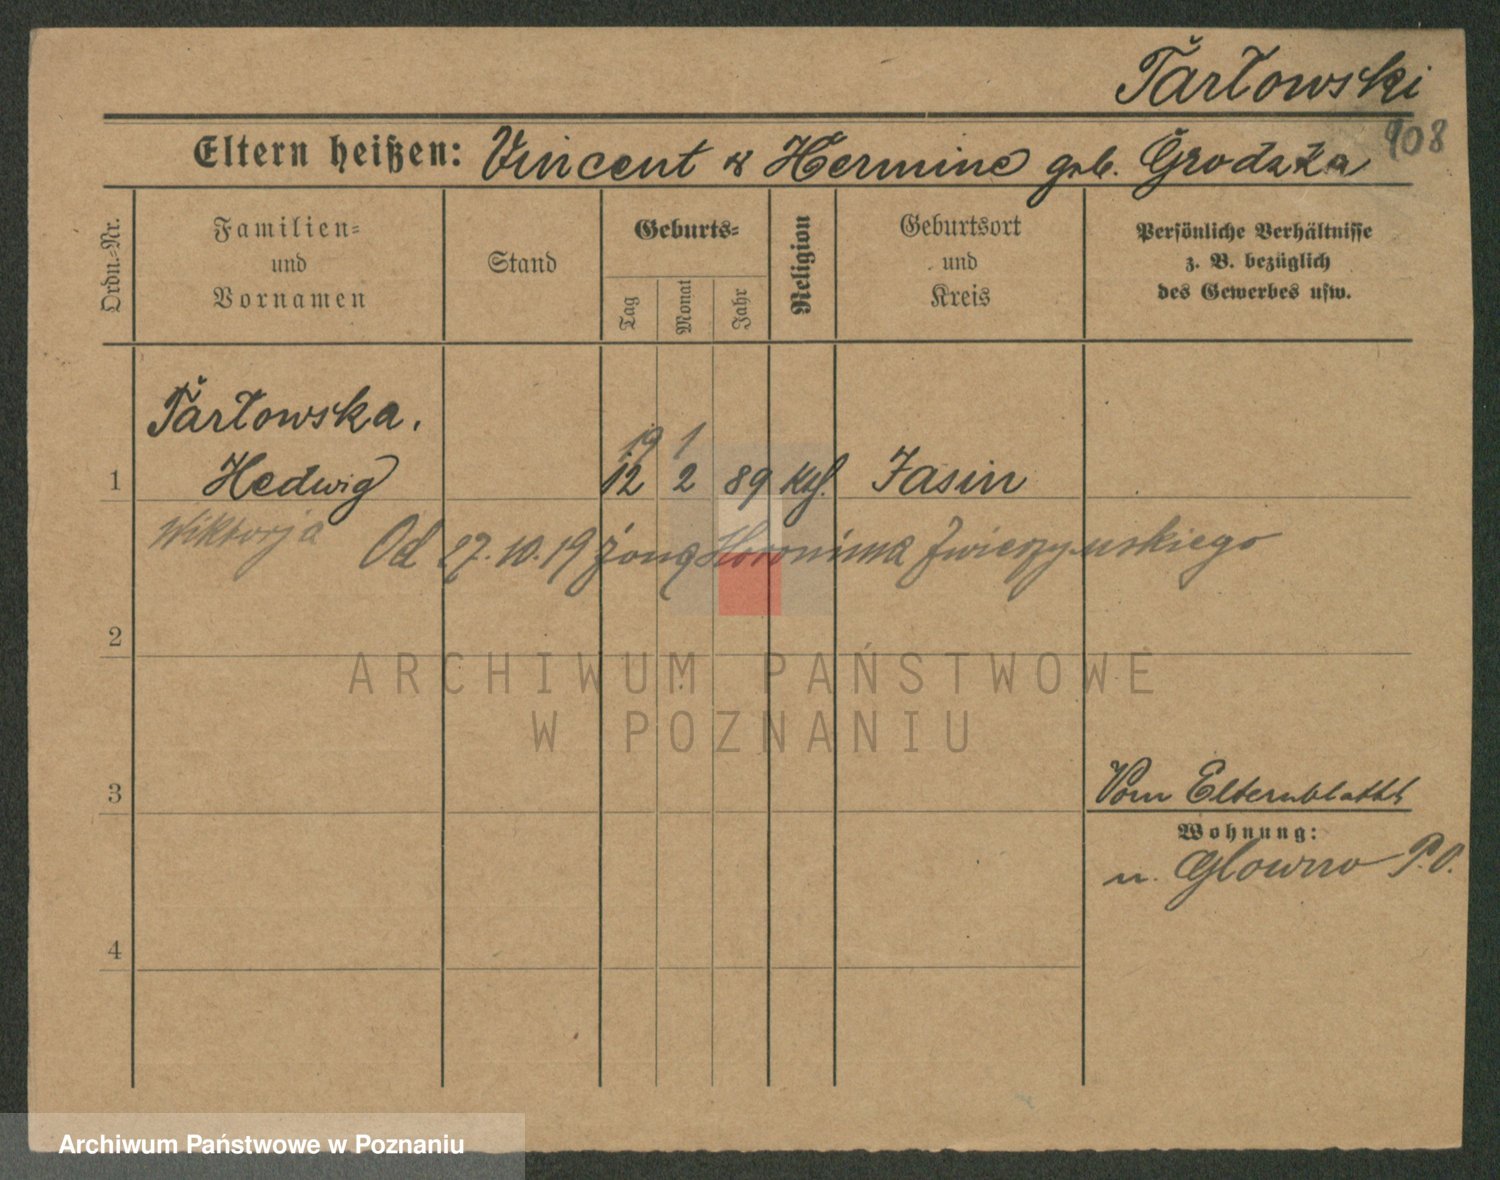 Tarłowski
908
Eltern heißen: Vincent & Hermine geb. Grodzka
Ordn.-Nr.
Familien-
und
Vornamen
Stand
Geburts-
Tag
Monat
Jahr
Religion
Geburtsort
und
Kreis
Persönliche Verhältnisse
z. B. bezüglich
des Gewerbes usw.
Tarłowska,
19 1
1 Hedwig 12 2 89 kth. Jasin
Wiktorja Od 27.10.19 żona Hieronima Zwierzynskiego
2
ARCHIWUM PAŃSTWOWE
W POZNANIU
3
Vom Elternblatt
Wohnung:
n. Glowno P.O.
4
Archiwum Państwowe w Poznaniu